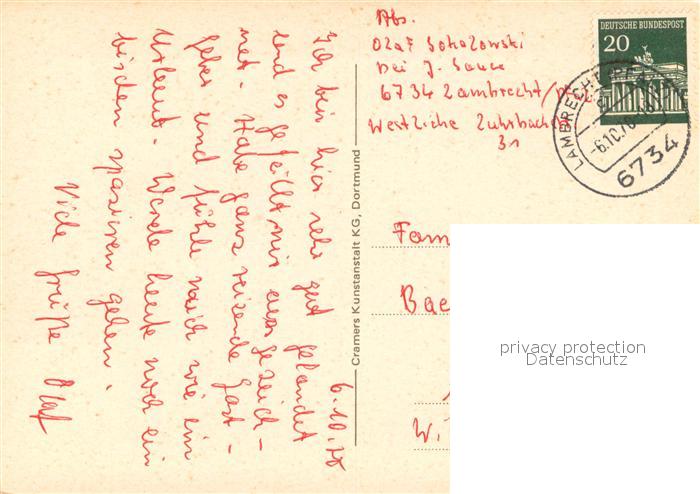 6.10.70
Ich bin hier sehr gut gelandet
und es gefällt mir ausgezeich-
net. Habe ganz reizende Gast-
geber und fühle mich wie im
Urlaub. Werde heute noch ein
bischen spaziren gehen.
Viele Grüße Olaf
Cramers Kunstanstalt KG, Dortmund
Abs.
Olaf Sokolowski
bei J. Sauer
6734 Lambrecht/
Westliche
31
DEUTSCHE BUNDESPOST
20
LAMBRECHT
-6.10.70
6734
Fam
Bae
Wi
privacy protection
Datenschutz